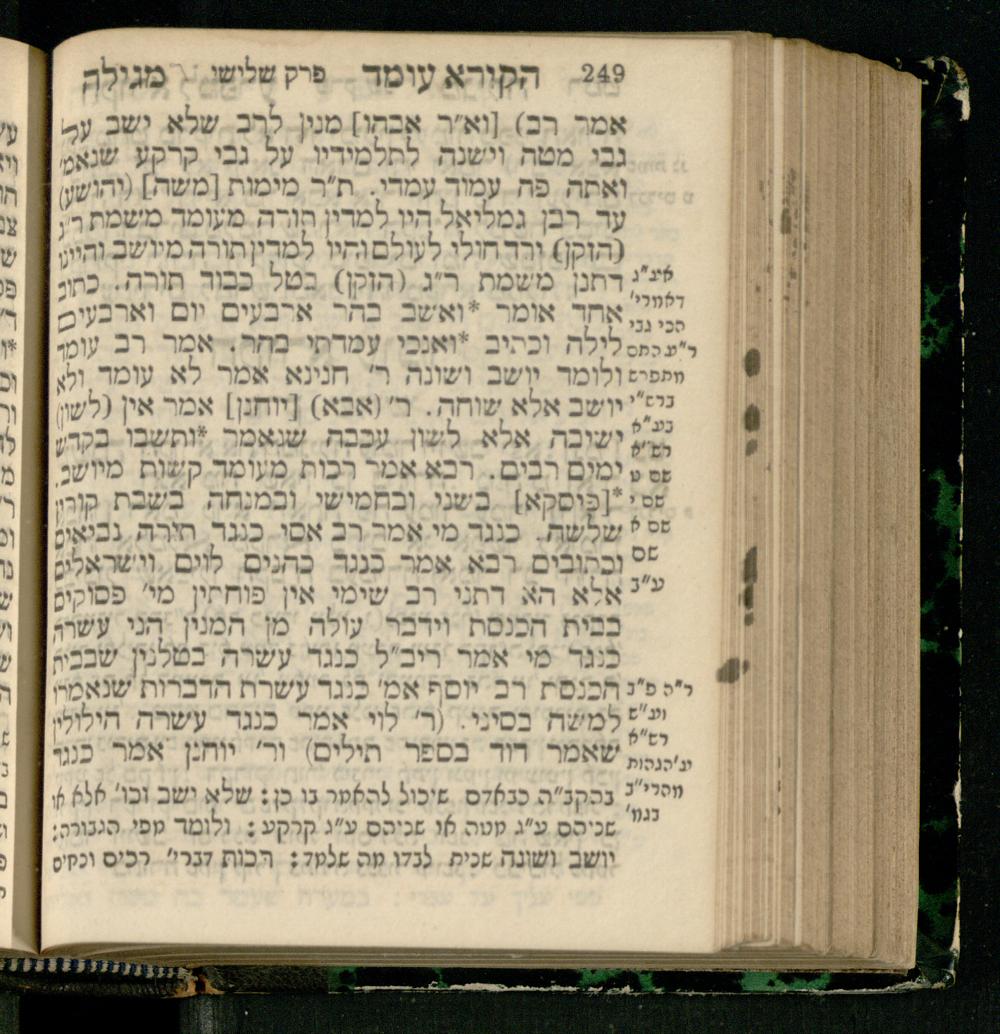 249 הקורא עומד פרק שלישי מגילה
אמר רב) [וא״ר אבהו] מנין לרב שלא ישב על
גבי מטה וישנה לתלמידיו על גבי קרקע שנאמ׳
ואתה פה עמוד עמדי. ת״ר מימות [משה] (יהושע)
עד רבן גמליאל היו למדין תורה מעומד משמת ר״ג
(הזקן) ירד חולי לעולם והיו למדין תורה מיושב והיינו
דתנן משמת ר״ג (הזקן) בטל כבוד תורה. כתוב
אחד אומר *ואשב בהר ארבעים יום וארבעים
לילה וכתיב *ואנכי עמדתי בהר. אמר רב עומד
ולומד יושב ושונה ר׳ חנינא אמר לא עומד ולא
יושב אלא שוחה. ר׳ (אבא) [יוחנן] אמר אין (לשון)
ישיבה אלא לשון עכבה שנאמר *ותשבו בקדש
ימים רבים. רבא אמר רכות מעומד קשות מיושב.
*[פיסקא] בשני ובחמישי ובמנחה בשבת קורין
שלשה. כנגד מי אמר רב אסי כנגד תורה נביאים
וכתובים רבא אמר כנגד כהנים לוים וישראלים
אלא הא דתני רב שימי אין פוחתין מי׳ פסוקים
בבית הכנסת וידבר עולה מן המנין הני עשרה
כנגד מי אמר ריב״ל כנגד עשרה בטלנין שבבית
הכנסת רב יוסף אמ׳ כנגד עשרת הדברות שנאמרו
למשה בסיני. (ר׳ לוי אמר כנגד עשרה הילולין
שאמר דוד בספר תילים) ור׳ יוחנן אמר כנגד
בהקב״ה כבאדם שיכול להאמר בו כן: שלא ישב וכו׳ אלא או
שניהם ע״ג מטה או שניהם ע״ג קרקע: ולומד מפי הגבורה:
יושב ושונה שנית לבדו מה שלמד: רכות דברי׳ רכים ונחים
דאמרי׳
הכי גבי
ר״ע התם
מתפרש
ברש״י
בע״א
רש״א
שם ט
שם י
שם א
שם
ע״ב
ר״ה פ״ב
וע״ש
רש״א
ע׳ הגהות
מהרי״ב
בגמ׳